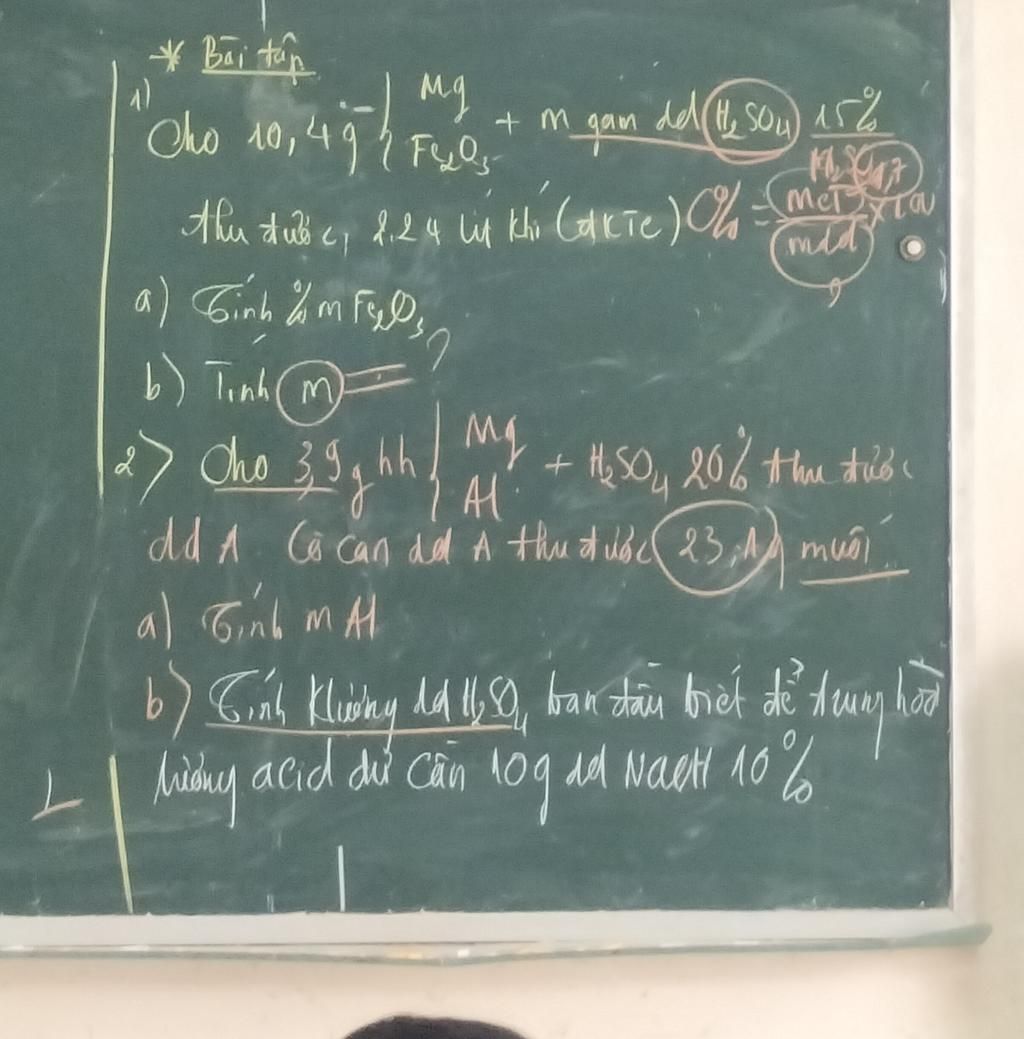 * Bài tập
1) Cho 10,4g { Mg Fe2O3 + m gam dd H2SO4 15%
thu được 2,24 lít khí (đktc) C% = mct / mdd x 100
a) Tính % m Fe2O3
b) Tính m = ?
2) Cho 3,9g hh { Mg Al + H2SO4 20% thu được
dd A Cô cạn dd A thu được 23,1g muối
a) Tính m Al
b) Tính klượng dd H2SO4 ban đầu biết để trung hoà
lượng acid dư cần 10g dd NaOH 10%